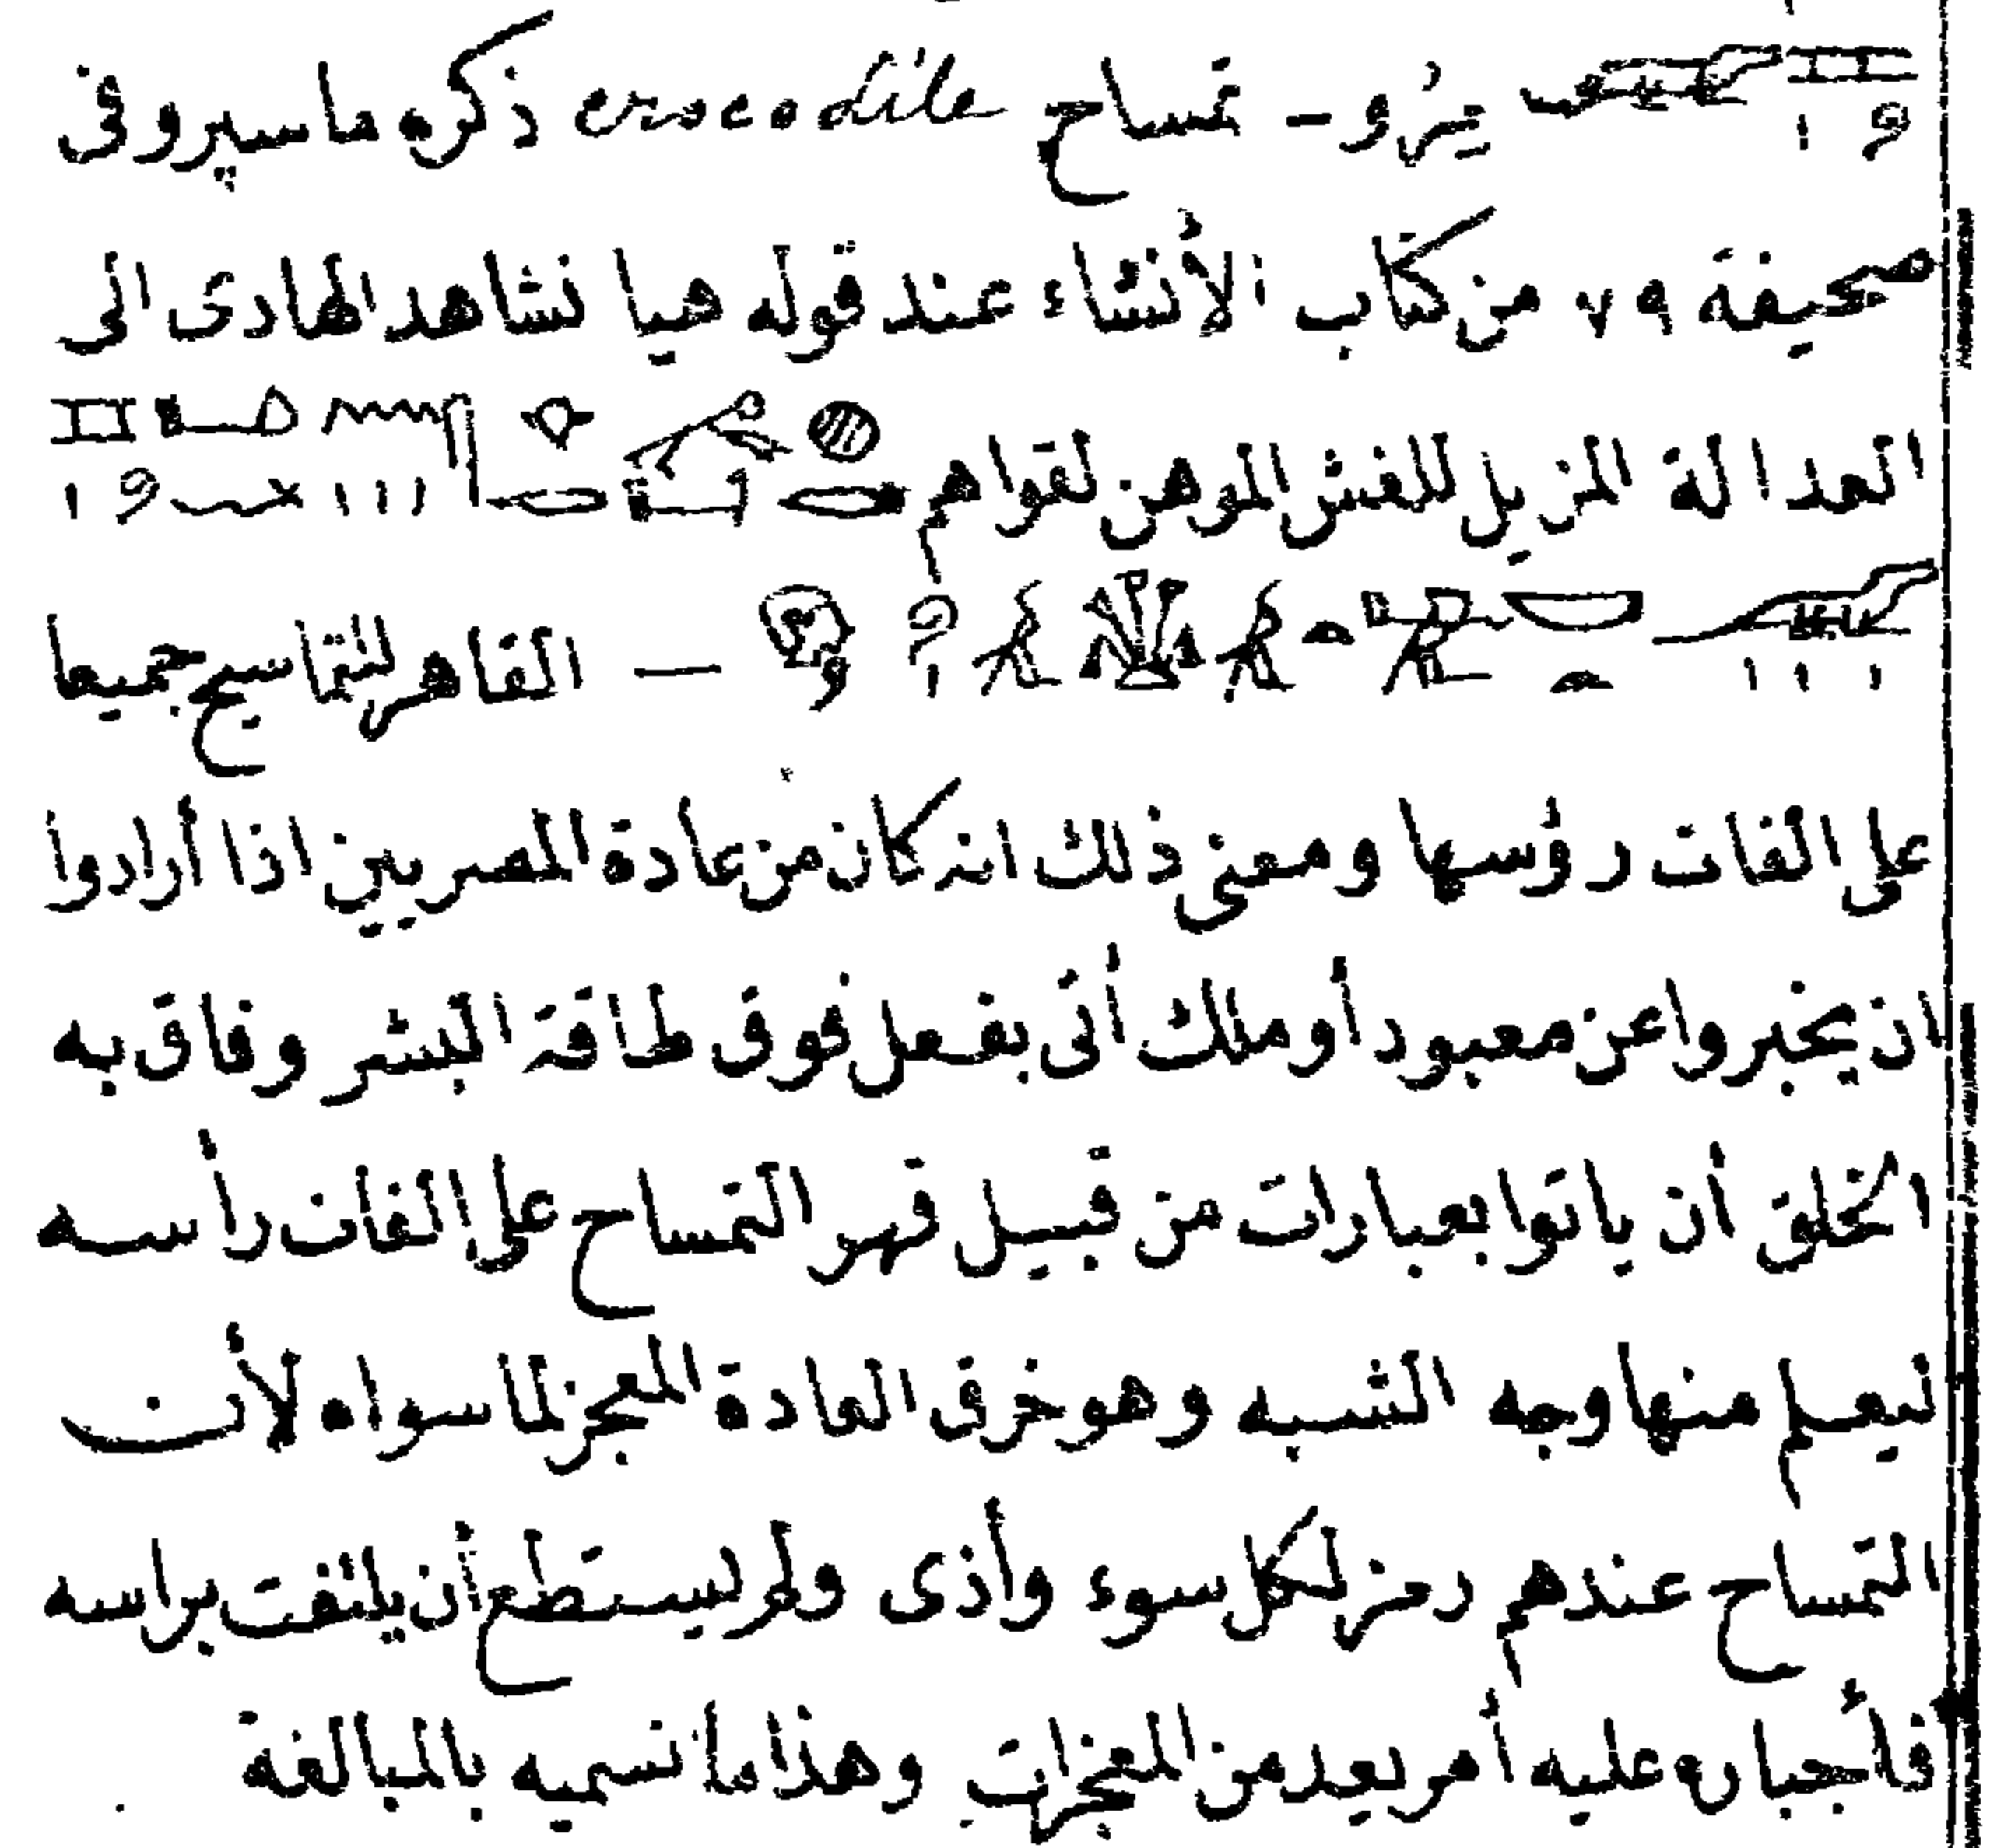 تمساح crocodile ذكره ماسپرو فى
صحيفة ٧٩ من كتاب الأنشاء عند قوله هيا نشاهد الهادى الى
العدالة المزيل للغش الموهن لقواهم
— القاهر للتماسيح جميعا
على التفات رؤسها ومعنى ذلك انه كان من عادة المصريين اذا أرادوا
ان يخبروا عن معبود أو ملك أتى بفعل فوق طاقة البشر وفاق به
الخلق أن ياتوا بعبارات من قبيل قهر التمساح على التفات رأسه
ليعلم منها وجه الشبه وهو خرق العادة المعجز لما سواه لأن
التمساح عندهم رمز لكل سوء وأذى ولم يستطع أن يلتفت براسه
فأجباره عليه أمر يعد من المعجزات وهذا ما نسميه بالمبالغة